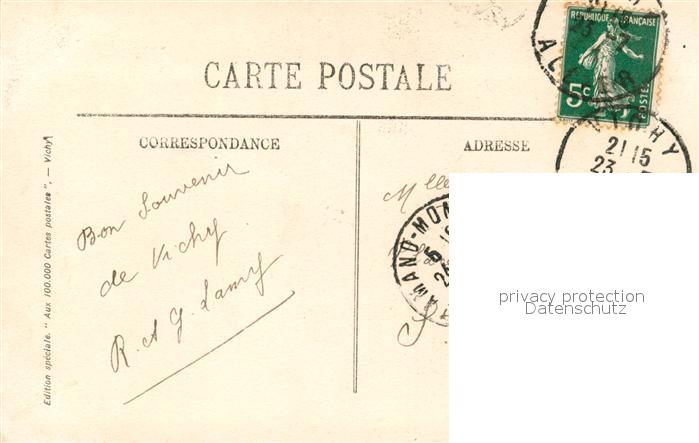 RÉPUBLIQUE FRANÇAISE
5c POSTES
CARTE POSTALE
VICHY
21 15
23
CORRESPONDANCE
ADRESSE
Mlle
AMAND-MON
Bon Souvenir
de Vichy
R. et G. Lamy
Edition spéciale. " Aux 100.000 Cartes postales ", — Vichy
privacy protection
Datenschutz